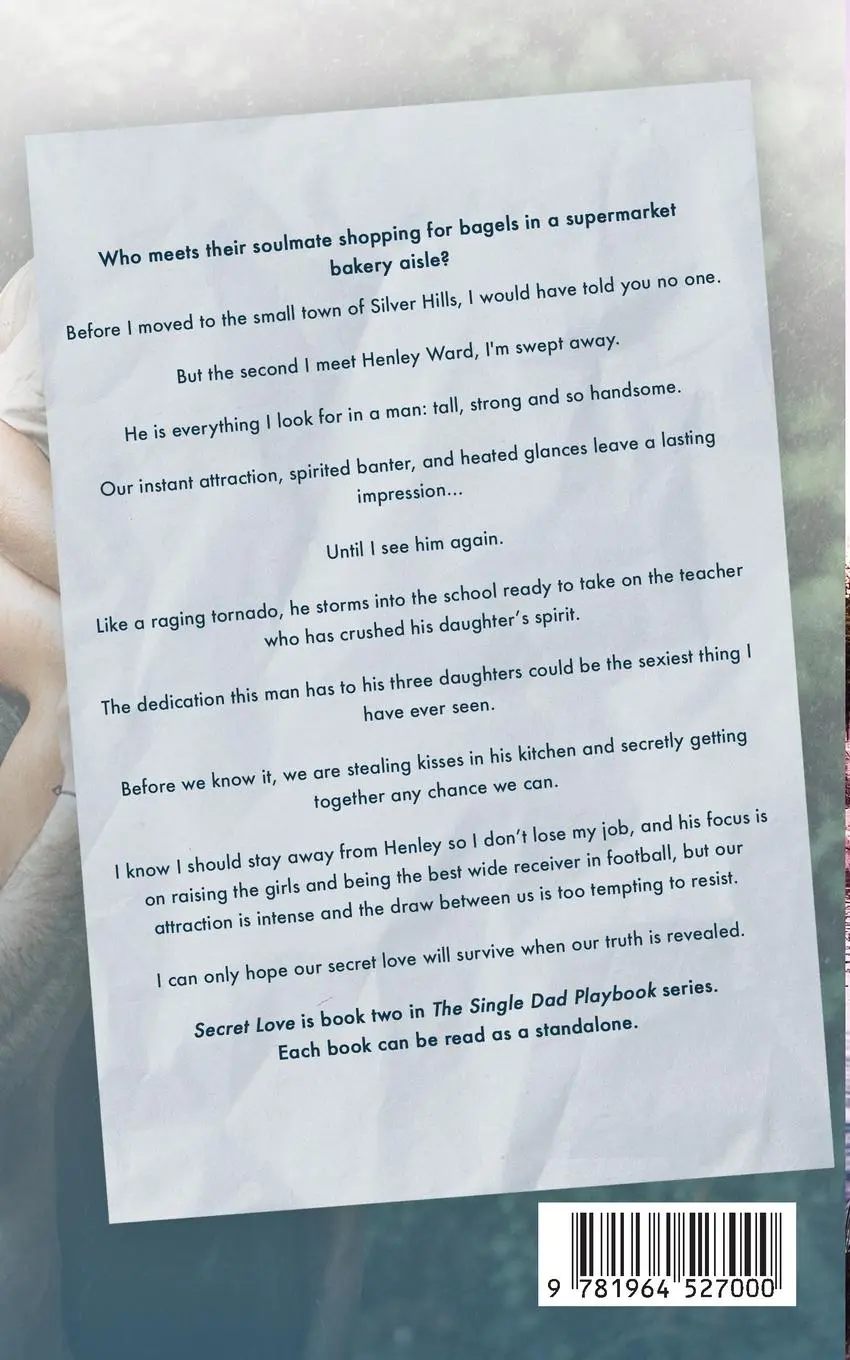 Who meets their soulmate shopping for bagels in a supermarket
bakery aisle?
Before I moved to the small town of Silver Hills, I would have told you no one.
But the second I meet Henley Ward, I'm swept away.
He is everything I look for in a man: tall, strong and so handsome.
Our instant attraction, spirited banter, and heated glances leave a lasting
impression...
Until I see him again.
Like a raging tornado, he storms into the school ready to take on the teacher
who has crushed his daughter’s spirit.
The dedication this man has to his three daughters could be the sexiest thing I
have ever seen.
Before we know it, we are stealing kisses in his kitchen and secretly getting
together any chance we can.
I know I should stay away from Henley so I don’t lose my job, and his focus is
on raising the girls and being the best wide receiver in football, but our
attraction is intense and the draw between us is too tempting to resist.
I can only hope our secret love will survive when our truth is revealed.
Secret Love is book two in The Single Dad Playbook series.
Each book can be read as a standalone.
9 781964 527000